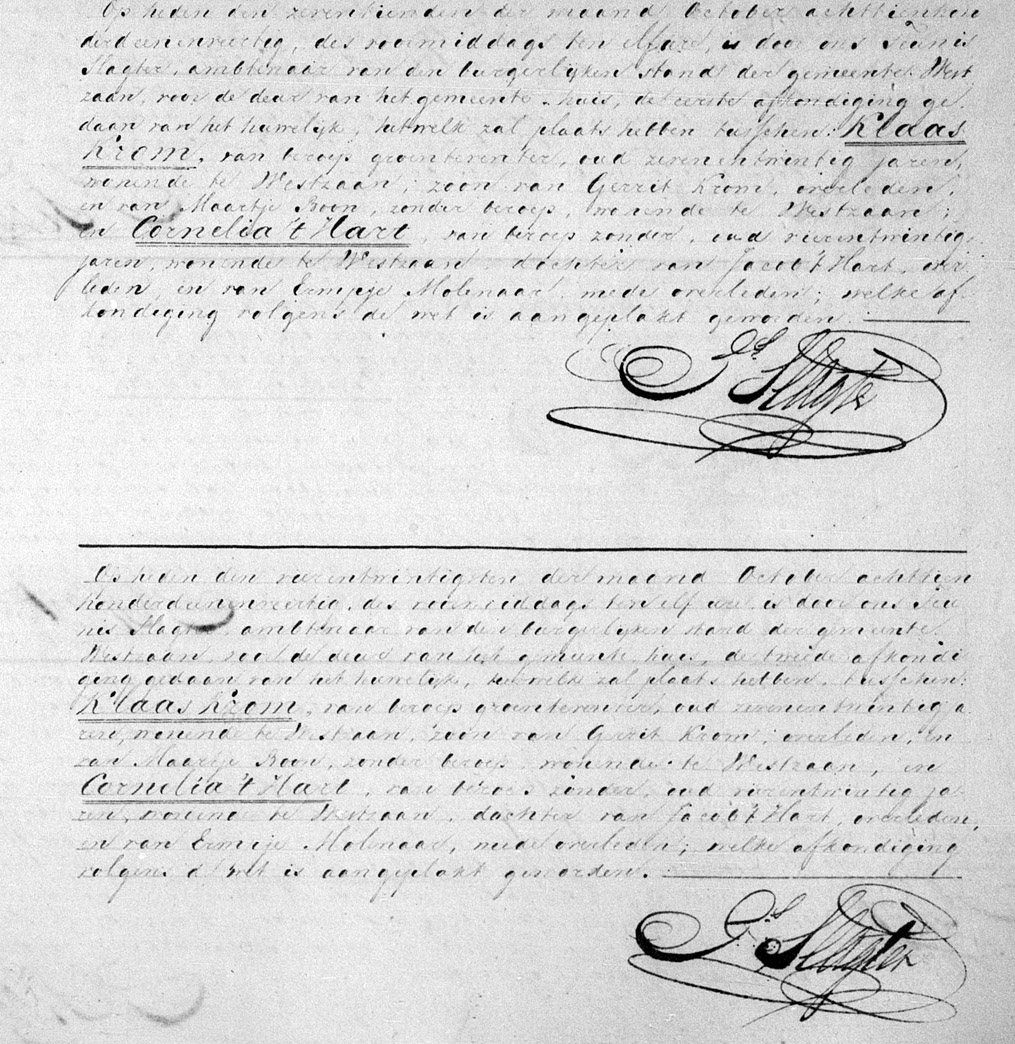 Op heden den zeventienden der maand October achttienhon
derdeenenveertig, des voormiddags ten elf ure, is door ons Teunis
Slagter, ambtenaar van den burgerlijken stand der gemeente West
zaan, voor de deur van het gemeente-huis, de eerste afkondiging ge
daan van het huwelijk, hetwelk zal plaats hebben tusschen: Klaas
Krom, van beroep groenterenter, oud zevenentwintig jaren,
wonende te Westzaan, zoon van Gerrit Krom, overleden,
en van Maartje Boon, zonder beroep, wonende te Westzaan;
en Cornelia 't Hart, van beroep zonder, oud vierentwintig
jaren, wonende te Westzaan, dochter van Jacob 't Hart, over
leden, en van Ermpje Molenaar, mede overleden; welke af-
kondiging volgens de wet is aangeplakt geworden.
Slagter
Op heden den vierentwintigsten der maand October achttien
honderdeenenveertig, des voormiddags ten elf ure, is door ons Teu
nis Slagter, ambtenaar van den burgerlijken stand der gemeente
Westzaan, voor de deur van het gemeente huis, de tweede afkondi
ging gedaan van het huwelijk, hetwelk zal plaats hebben, tusschen:
Klaas Krom, van beroep groenterenter, oud zevenentwintig ja
ren, wonende te Westzaan, zoon van Gerrit Krom, overleden, en
van Maartje Boon, zonder beroep, wonende te Westzaan, en
Cornelia 't Hart, van beroep zonder, oud vierentwintig ja-
ren, wonende te Westzaan, dochter van Jacob 't Hart, overleden,
en van Ermpje Molenaar, mede overleden; welke afkondiging
volgens d wet is aangeplakt geworden.
Slagter